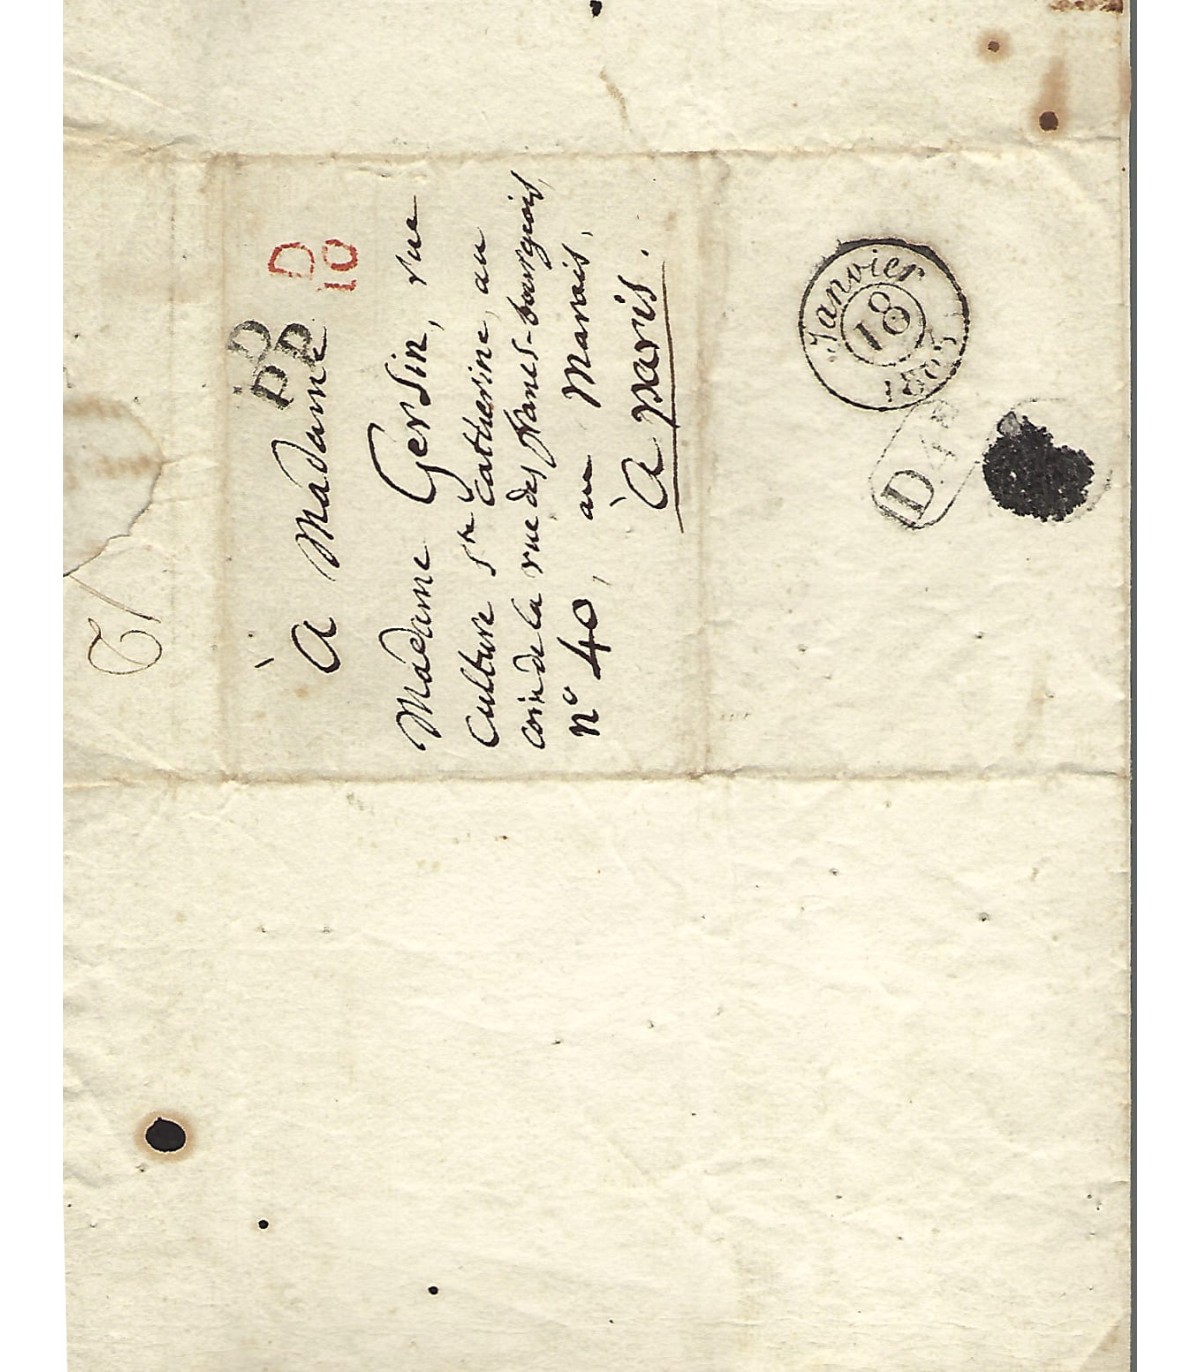 D
PP
D
10
à Madame
Madame Gersin, rue
Culture Ste Catherine, au
coin de la rue des francs-bourgeois,
n° 40, au Marais,
à paris.
Janvier
18
D.4